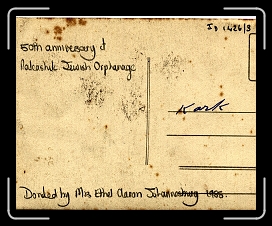 ID 1426/3
50th anniversary of
Jewish Orphanage
Kark
Donated by Mrs Ethel Aaron Johannesburg 1985.